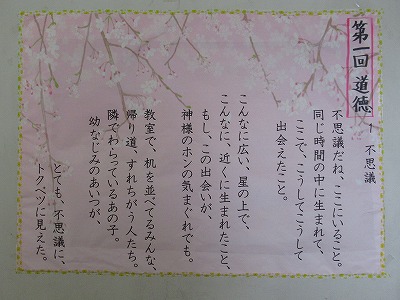 第一回 道徳
1 不思議
不思議だね、ここにいること。
同じ時間の中に生まれて、
ここで、こうしてこうして
出会えたこと。
こんなに広い、星の上で、
こんなに、近くに生まれたこと、
もし、この出会いが、
神様のホンの気まぐれでも。
教室で、机を並べてるみんな、
帰り道、すれちがう人たち。
隣でわらっているあの子。
幼なじみのあいつが、
とても、不思議に、
トクベツに見えた。